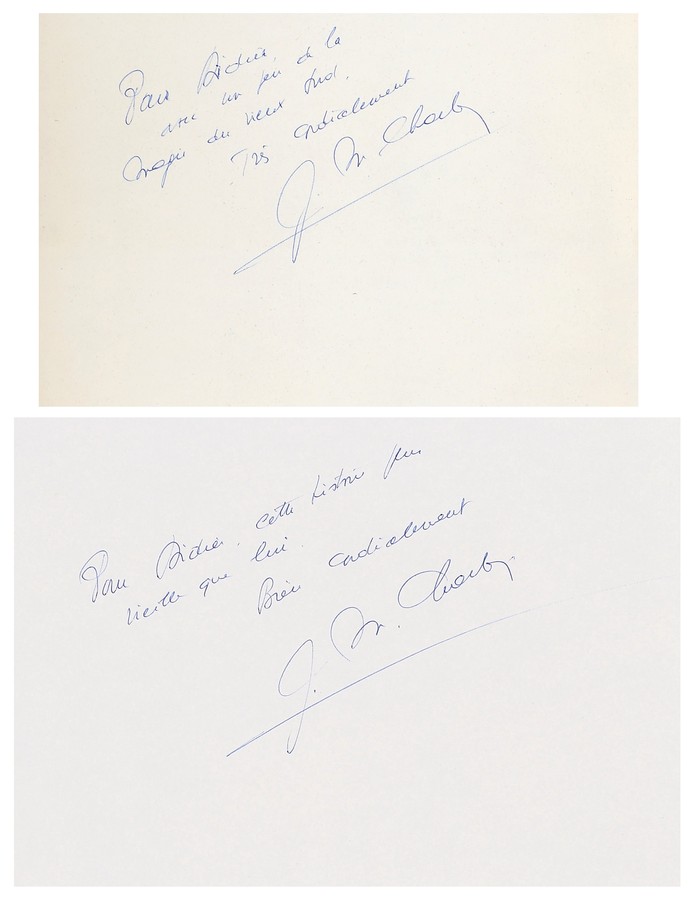 Pour Didier,
avec un peu de la
magie du vieux Sud.
Très cordialement
J. M. Charlier
Pour Didier. cette histoire plus
vieille que lui.
Bien cordialement
J. M. Charlier